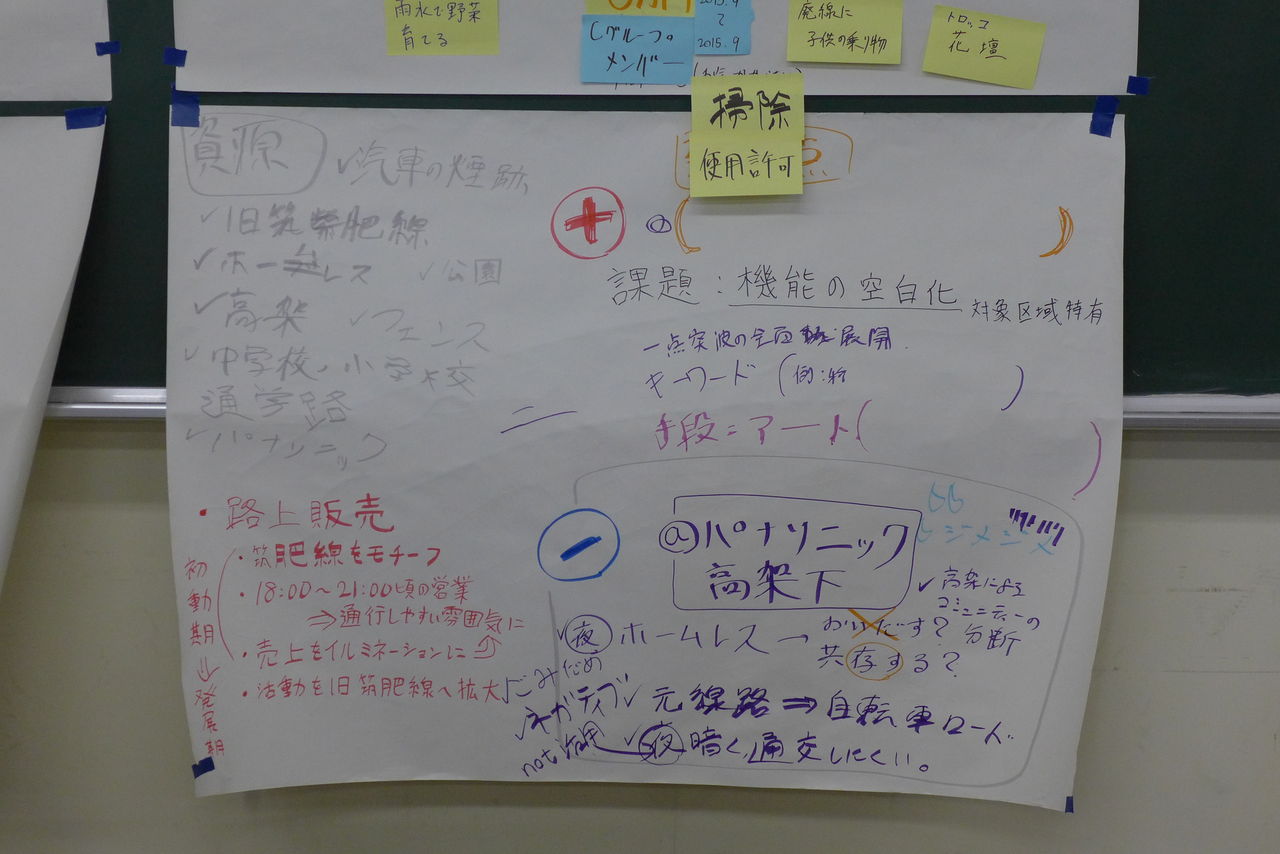 雨水で野菜
育てる
Cグループ。
メンバー
2015.9
廃線に
子供の乗り物
トロッコ
花壇
掃除
使用許可
資源
✓汽車の煙跡
✓旧筑紫肥線
✓ホームレス ✓公園
✓高架 ✓フェンス
✓中学校、小学校
通学路
✓パナソニック
点
+ の ( )
課題：機能の空白化 対象区域特有
一点突破の全面展開
キーワード（例： ）
手段=アート( )
・路上販売
・筑肥線をモチーフ
・18:00〜21:00頃の営業
⇒通行しやすい雰囲気に
・売上をイルミネーションに
・活動を旧筑肥線へ拡大
初動期→発展期
−
@パナソニック
高架下
✓高架による
コミュニティーの
分断
✓夜 ホームレス→おいだす？
共存する？
✓ごみだめ
✓ネガティブ
元線路⇒自転車ロード
not 活用
✓夜 暗く、通交しにくい。